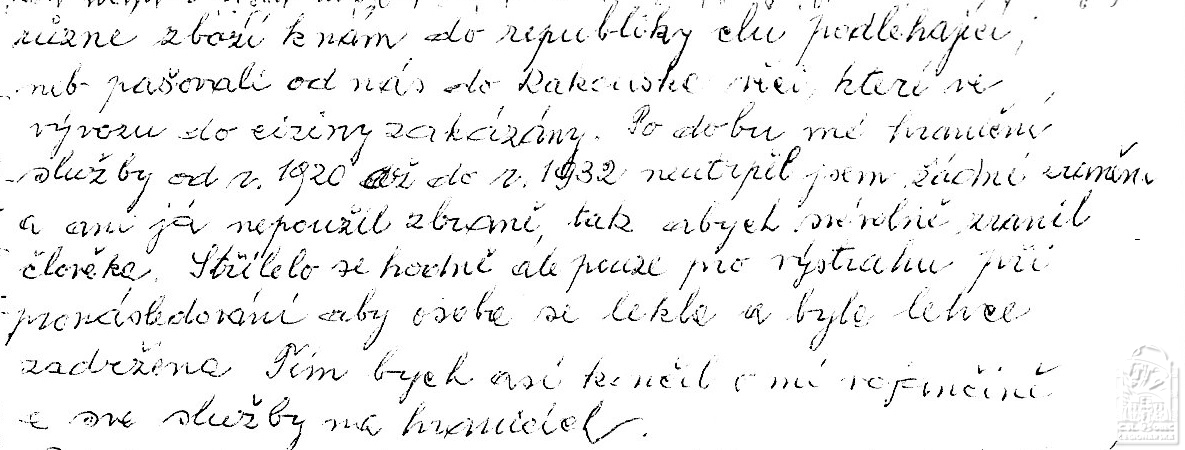 různé zboží k nám do republiky clu podléhající,
neb pašovali od nás do Rakouska věci, kteri ve
vývozu do ciziny zakázány. Po dobu mé hraniční
služby od r. 1920 až do r. 1932 neutrpěl jsem žádné zranění
a ani já nepoužil zbraně, tak abych smrtelně zranil
člověka. Střílelo se hodně ale pouze pro výstrahu při
pronásledování aby osoba se lekla a byla lehce
zadržena Tím bych asi končil o mé vojančině
a své služby na hranicích.